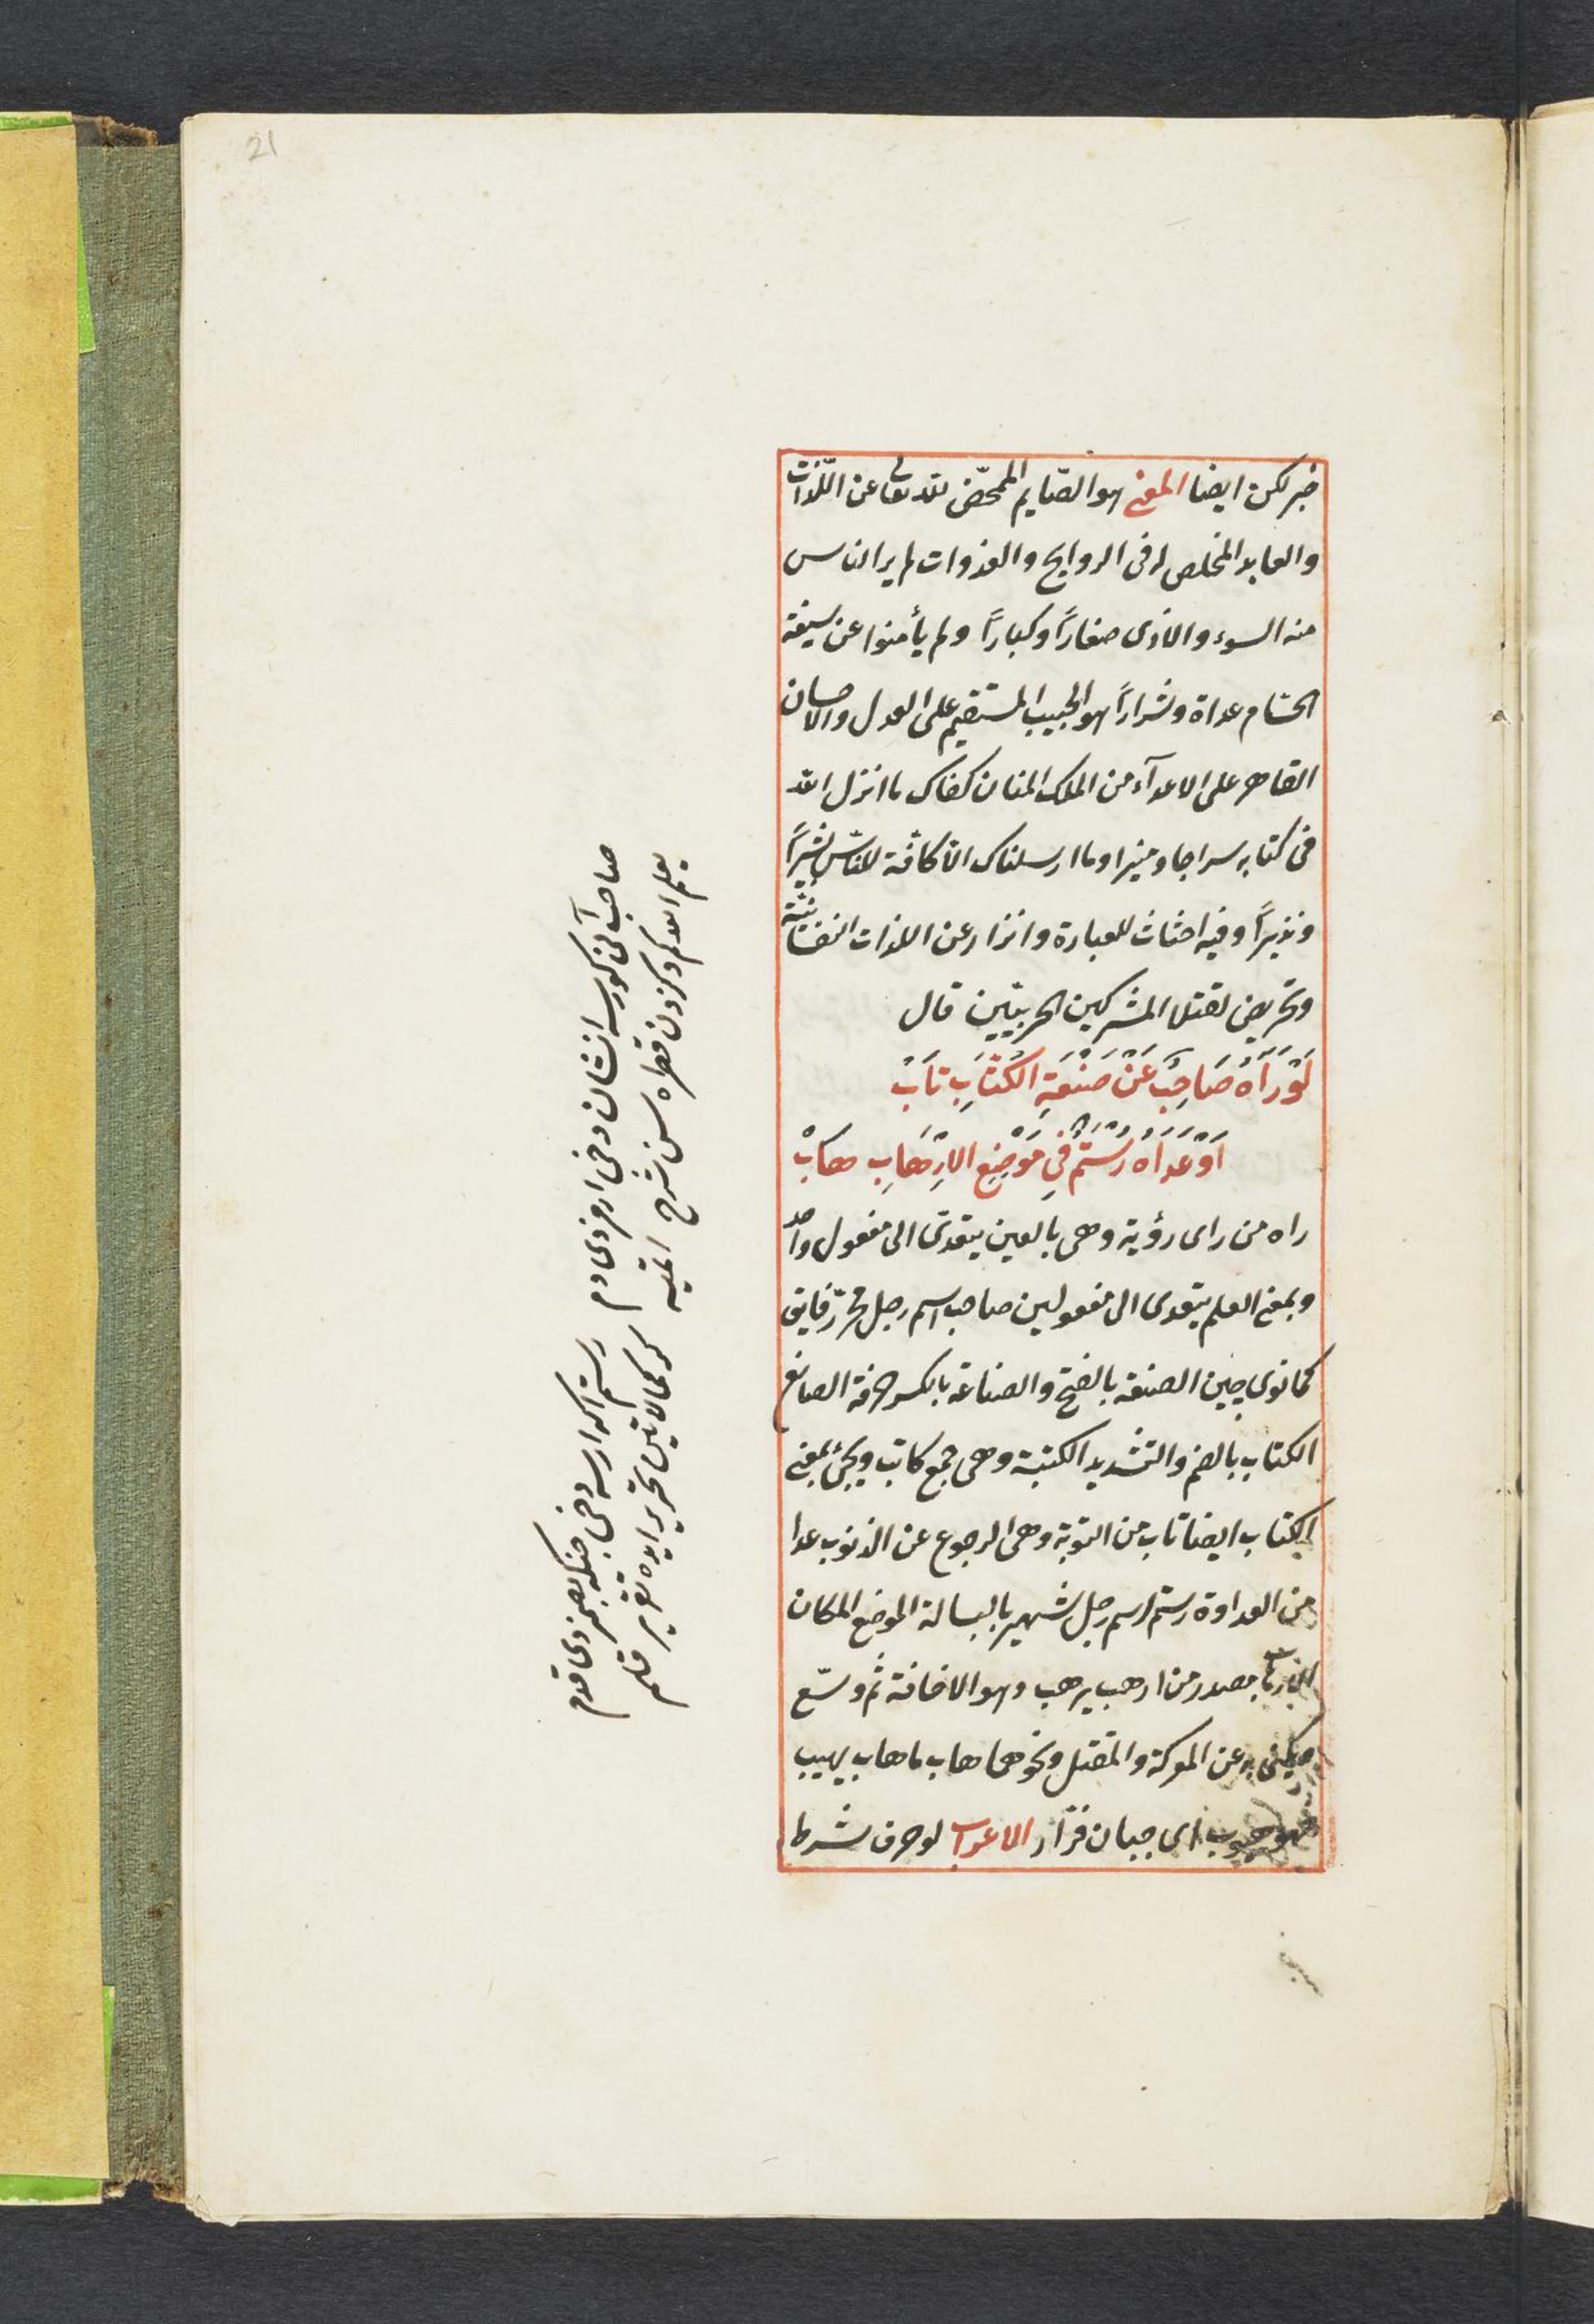 21
خبر لكن ايضا المعنى هو الصّايم الممحّض لله تعالى عن اللّذات
والعابد المخلص له فى الروايح والغدوات لم ير الناس
منه السوء والاذى صغاراً وكباراً ولم يأمنوا عن سيفه
الحسام عداة وشراراً هو الحبيب المستقيم على العدل والاحسان
القاهر على الاعدآء من الملك المنان كفاك ما انزل الله
فى كتابه سراجا ومنيرا وما ارسلناك الّا كافّة للنّاس بشيراً
ونذيراً وفيه احثاث للعبادة وانزار عن اللذات النفسانيّة
وتحريض لقتل المشركين الحربيّين قال
لَوْ رَاَهُ صَاحِبٌ عَنْ صَنْعَةِ الكُتَّابِ تَابْ
اَوْ عَدَاهُ رُسْتُمٌ فِى مَوْضِعِ الاِرْهَابِ هَابْ
راه من راى رؤية وهى بالعين يتعدّى الى مفعول واحد
وبمعنى العلم يتعدى الى مفعولين صاحب اسم رجل محرّر فايق
كمانوى چين الصنعة بالفتح والصناعة بالكسر حرفة الصانع
الكتاب بالضم والتشديد الكتبة وهى جمع كاتب ويجئ بمعنى
الكتاب ايضا تاب من التوبة وهى الرجوع عن الذنوب عدا
من العداوة رستم اسم رجل شهير بالبسالة الموضع المكان
الارهاب مصدر من ارهب يرهب وهو الاخافة ثم وسّع
ويكنى به عن المعركة والمقتل ونحوهما هاب ماهاب يهيب
فهو هيوب اى جبان فرّار الاعراب لو حرف شرط
صاحب آنى كورسه انشان دخى اورزدى دم
رستم اكر ارسه دخى جنكه بصمزدى قدم
سن شرح ايتميه
كركمالاتين تحرير ايده تقرير قلم